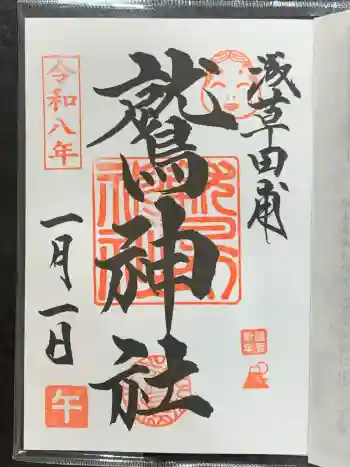 浅草田甫
鷲神社
令和八年
一月一日
午
謹賀
新年